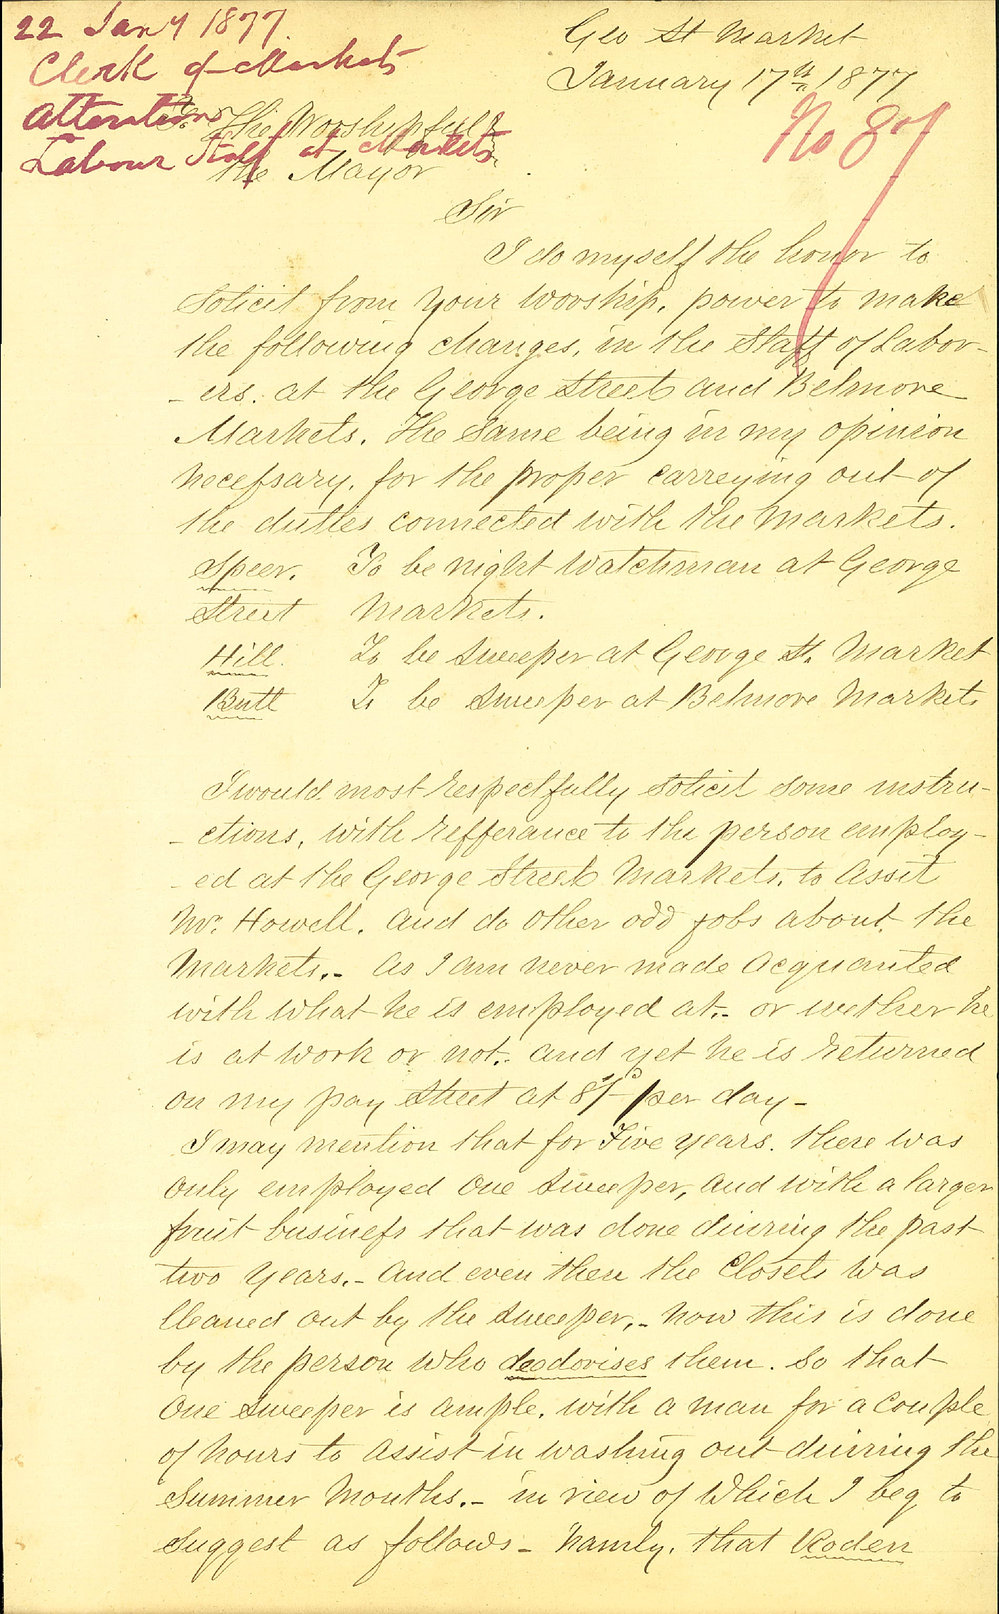 22 Jany 1877.
Clerk of Markets
Attentions
Labour Staff at Markets
Geo St Market
January 17th 1877
No 87
To The Worshipfull
the Mayor
Sir
I do myself the honor to
solicit from your Worship, power to make
the following changes, in the Staff of Labor-
-ers. at the George Street and Belmore
Markets. The same being in my opinion
necessary, for the proper carreying out of
the duties connected with the Markets.
Speer. To be night Watchman at George
Street Markets.
Hill. To be Sweeper at George St. Market
Butt To be Sweeper at Belmore Markets
I would most respectfully solicit some instru-
-ctions, with refferance to the person employ-
-ed at the George Street Markets, to assit
Mr. Howell. and do other odd jobs about the
Markets.- as I am never made acquanted
with what he is employed at.- or wether he
is at work or not. and yet he is returned
on my pay Street at 8/- per day-
I may mention that for Five years. there was
only employed one Sweeper, and with a larger
fruit business that was done duiring the past
two years.- and even then the Closets was
Cleaned out by the Sweeper,- now this is done
by the person who deodorises them. So that
one Sweeper is ample, with a man for a couple
of hours to assist in washing out duiring the
Summer Months.- in view of Which I beg to
suggest as follows- namly, that Roden